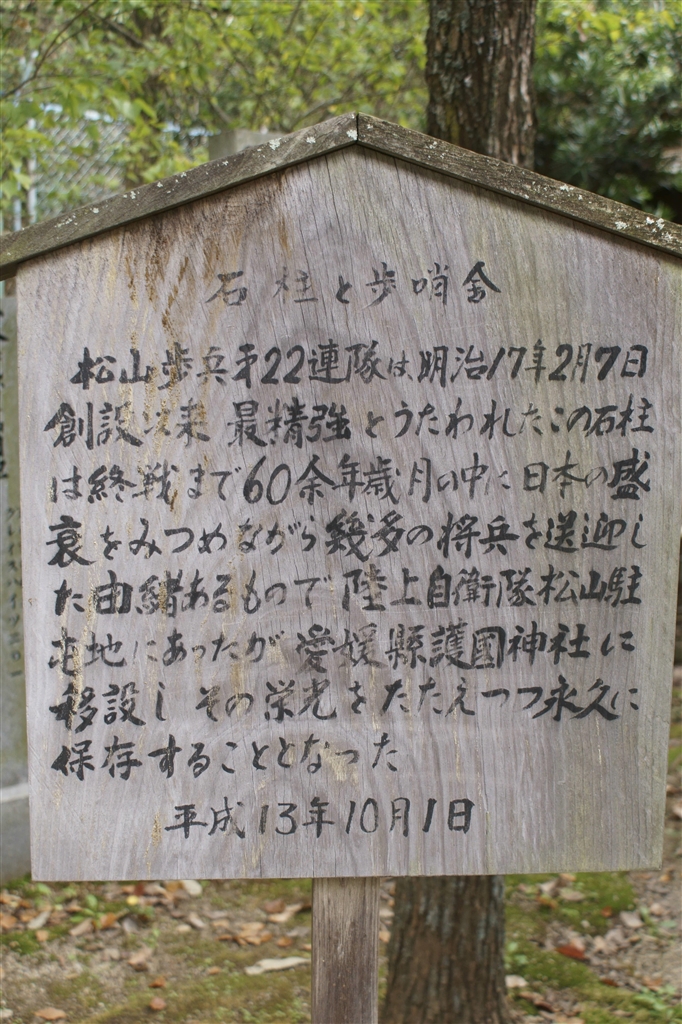 石柱と歩哨舎
松山歩兵第22連隊は明治17年2月7日
創設以来 最精強とうたわれたこの石柱
は終戦まで60余年歳月の中に日本の盛
衰をみつめながら幾多の将兵を送迎し
た由緒あるもので 陸上自衛隊松山駐
屯地にあったが 愛媛縣護國神社に
移設し その栄光をたたえつつ永久に
保存することとなった
平成13年10月1日